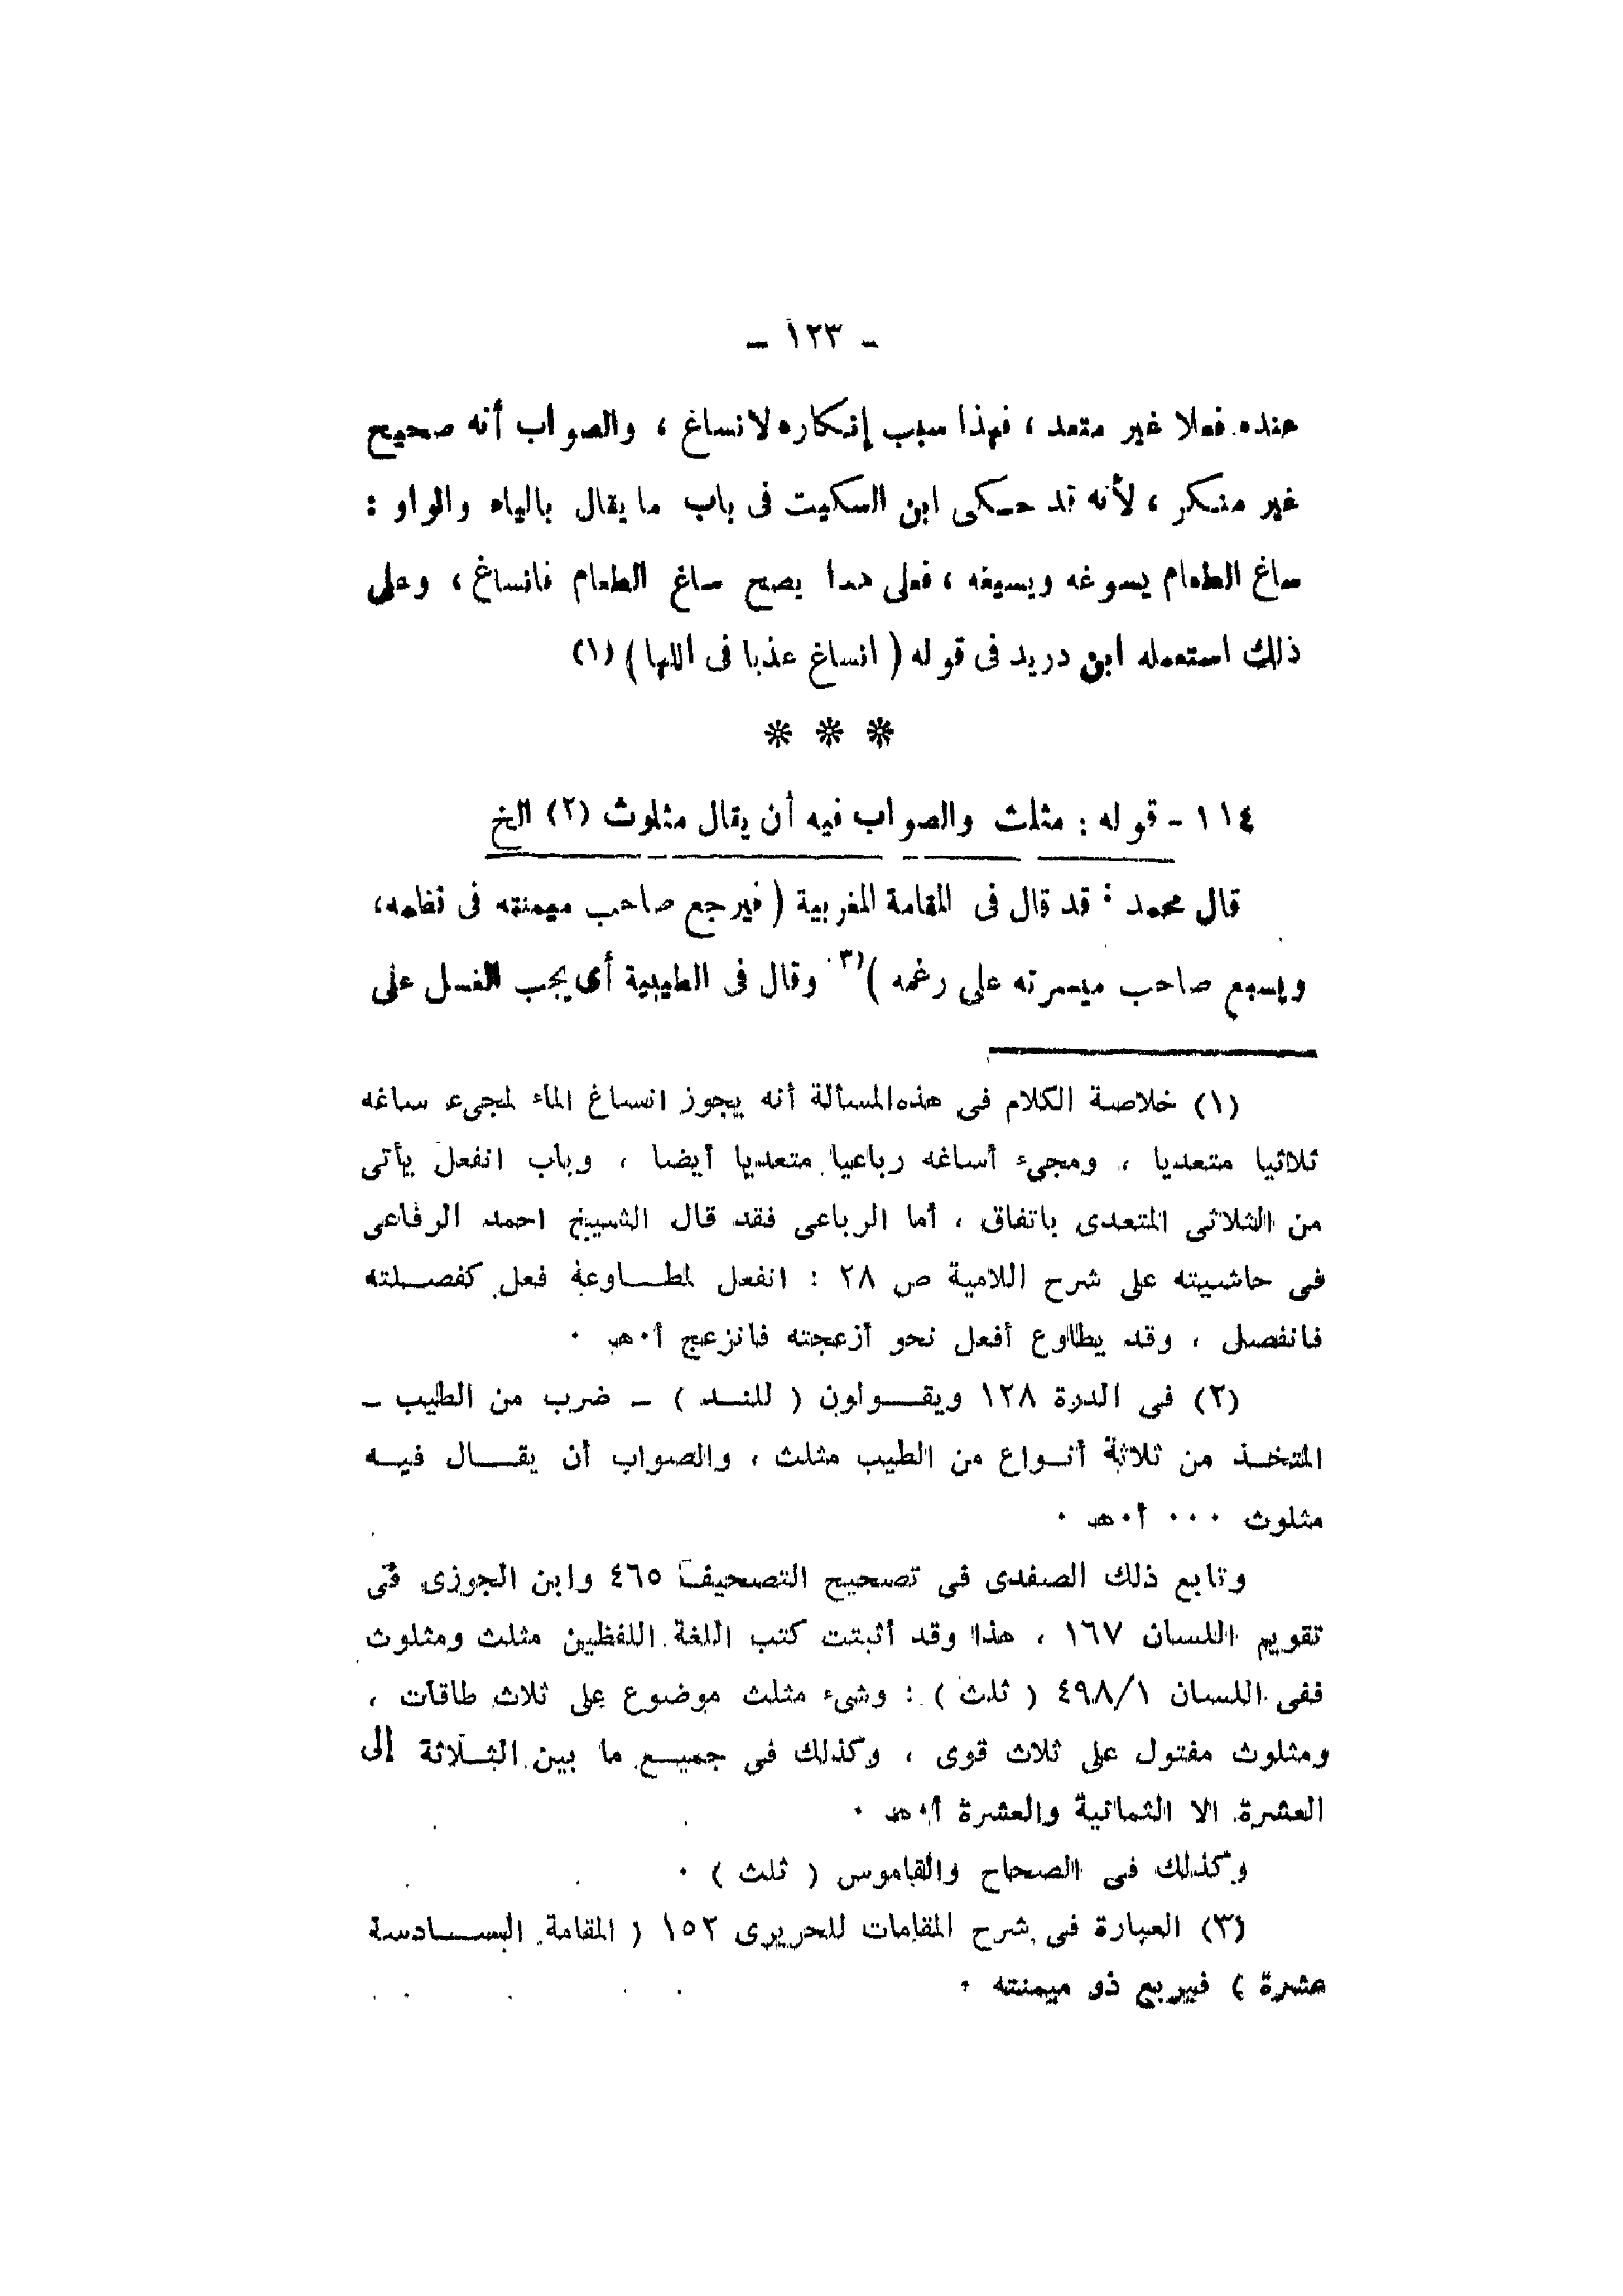 – ١٢٣ –
عنده فعلا غير متعد ، فهذا سبب إنكاره لانساغ ، والصواب أنه صحيح
غير منكر ، لأنه قد حكى ابن السكيت فى باب ما يقال بالياء والواو :
ساغ الطعام يسوغه ويسيغه ، فعلى هذا يصح ساغ الطعام فانساغ ، وعلى
ذلك استعمله ابن دريد فى قوله ( انساغ عذبا فى اللها ) (١)
* * *
١١٤ - قوله : مثلث والصواب فيه أن يقال مثلوث (٢) الخ
قال محمد : قد قال فى المقامة المغربية ( فيرجع صاحب ميمنته فى نظمه،
ويسبع صاحب ميسرته على رغمه )(٣) وقال فى الطيبية أى يجب الغسل على
(١) خلاصة الكلام فى هذه المسألة أنه يجوز انساغ الماء لمجىء ساغه
ثلاثيا متعديا ، ومجىء أساغه رباعيا متعديا أيضا ، وباب انفعل يأتى
من الثلاثى المتعدى باتفاق ، أما الرباعى فقد قال الشيخ احمد الرفاعى
فى حاشيته على شرح اللامية ص ٢٨ : انفعل لمطاوعة فعل كفصلته
فانفصل ، وقد يطاوع أفعل نحو أزعجته فانزعج أ٠هـ ٠
(٢) فى الدرة ١٢٨ ويقولون ( للند ) – ضرب من الطيب –
المتخذ من ثلاثة أنواع من الطيب مثلث ، والصواب أن يقال فيه
مثلوث ٠٠٠ أ٠هـ ٠
وتابع ذلك الصفدى فى تصحيح التصحيف ٤٦٥ وابن الجوزى فى
تقويم اللسان ١٦٧ ، هذا وقد أثبتت كتب اللغة اللفظين مثلث ومثلوث
ففى اللسان ٤٩٨/١ ( ثلث ) : وشىء مثلث موضوع على ثلاث طاقات ،
ومثلوث مفتول على ثلاث قوى ، وكذلك فى جميع ما بين الثلاثة إلى
العشرة الا الثمانية والعشرة أ٠هـ ٠
وكذلك فى الصحاح والقاموس ( ثلث ) ٠
(٣) العبارة فى شرح المقامات للحريرى ١٥٢ ( المقامة السادسة
عشرة ) فيربع ذو ميمنته ٠